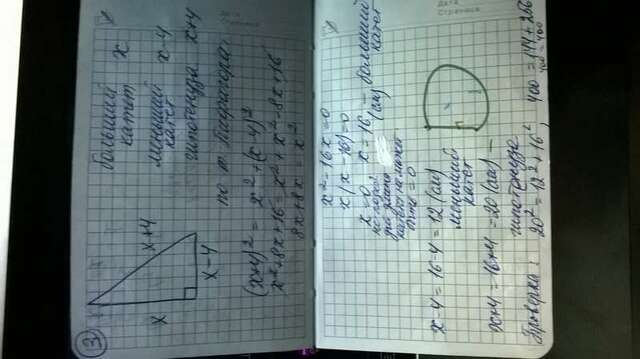 3
больший
катет x
x x+4
меньший
катет x-4
гипотенуза x+4
x-4
по т. Пифагора:
(x+4)² = x² + (x-4)²
x²+8x+16 = x² + x² - 8x + 16
8x+8x = x²
x² - 16x = 0
x(x-16) = 0
x=0 x=16 — больший
(см) катет
длина
катета не может
быть = 0
x-4 = 16-4 = 12 (см)
меньший
катет
x+4 = 16+4 = 20 (см) —
гипотенуза
Проверка: 20² = 12² + 16², 400 = 144 + 256
400 = 400